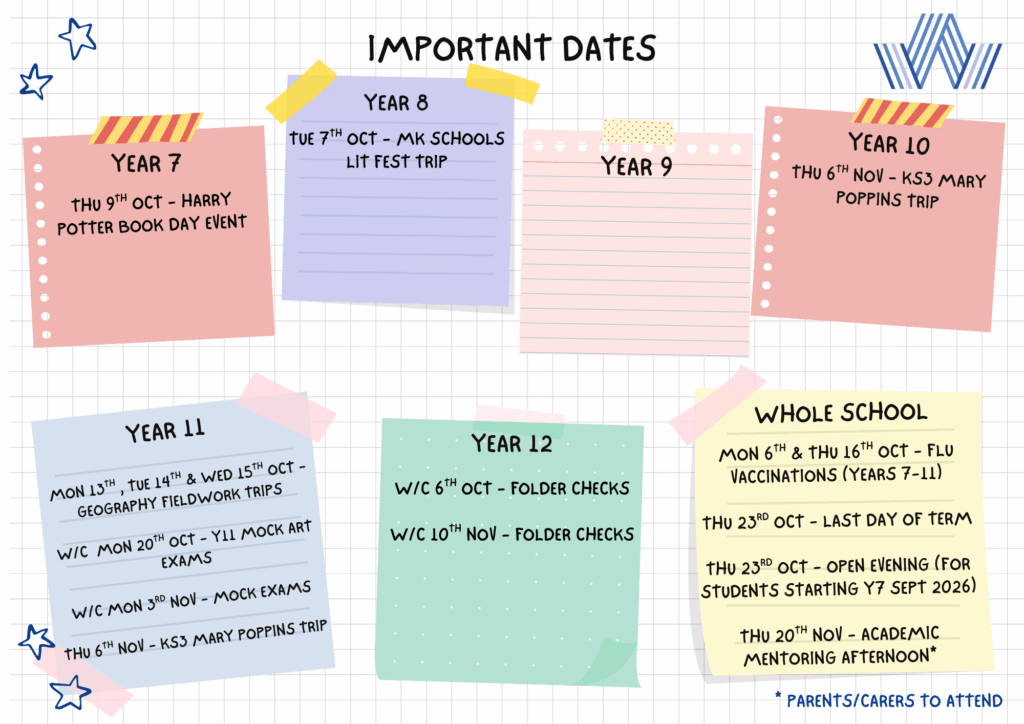 IMPORTANT DATES
YEAR 7
THU 9TH OCT - HARRY
POTTER BOOK DAY EVENT
YEAR 8
TUE 7TH OCT - MK SCHOOLS
LIT FEST TRIP
YEAR 9
YEAR 10
THU 6TH NOV - KS3 MARY
POPPINS TRIP
YEAR 11
MON 13TH , TUE 14TH & WED 15TH OCT -
GEOGRAPHY FIELDWORK TRIPS
W/C MON 20TH OCT - Y11 MOCK ART
EXAMS
W/C MON 3RD NOV - MOCK EXAMS
THU 6TH NOV - KS3 MARY POPPINS TRIP
YEAR 12
W/C 6TH OCT - FOLDER CHECKS
W/C 10TH NOV - FOLDER CHECKS
WHOLE SCHOOL
MON 6TH & THU 16TH OCT - FLU
VACCINATIONS (YEARS 7-11)
THU 23RD OCT - LAST DAY OF TERM
THU 23RD OCT - OPEN EVENING (FOR
STUDENTS STARTING Y7 SEPT 2026)
THU 20TH NOV - ACADEMIC
MENTORING AFTERNOON*
* PARENTS/CARERS TO ATTEND